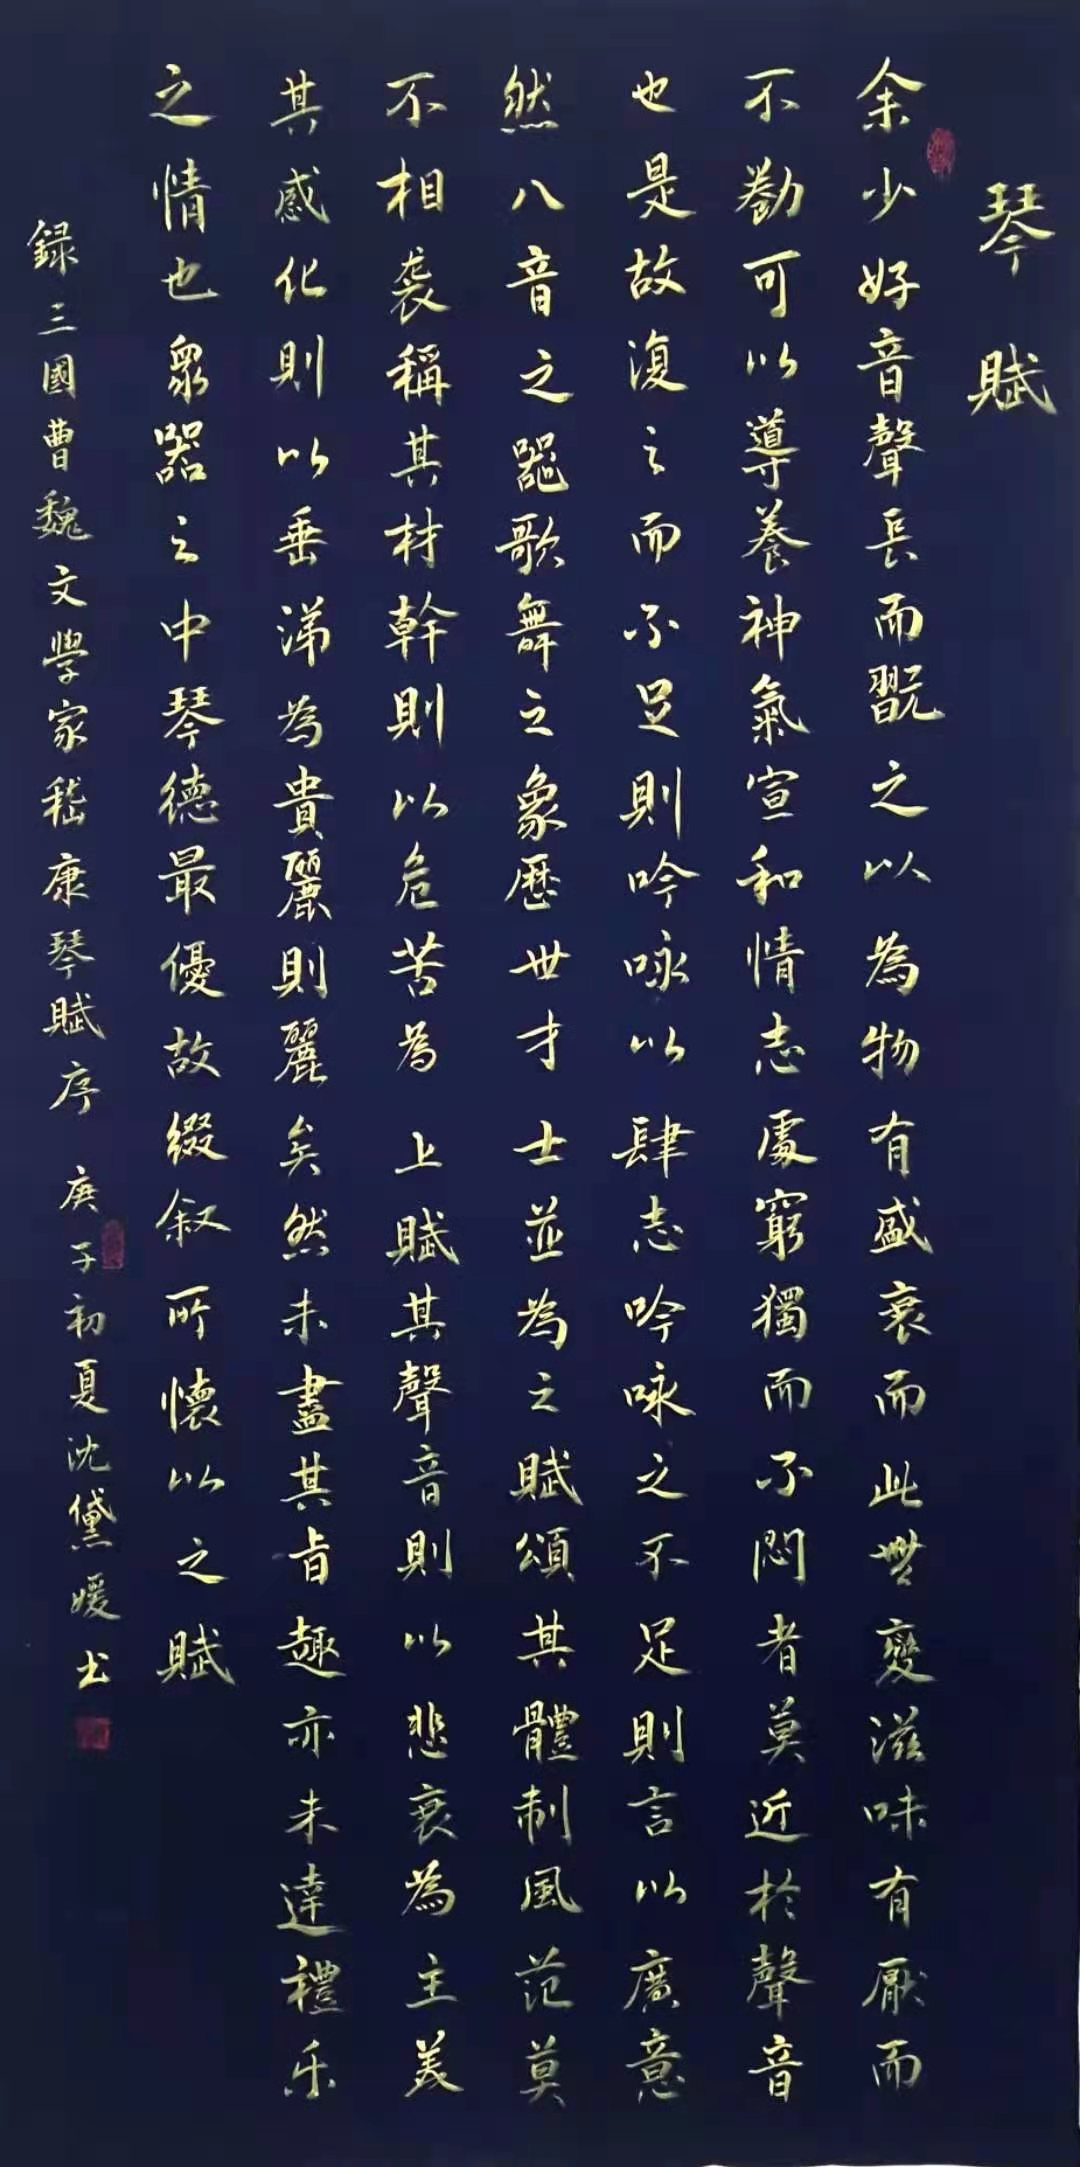 琴賦
余少好音聲長而翫之以為物有盛衰而此無變滋味有厭而
不勌可以導養神氣宣和情志處窮獨而不悶者莫近於聲音
也是故復之而不足則吟咏以肆志吟咏之不足則言以廣意
然八音之器歌舞之象歷世才士並為之賦頌其體制風范莫
不相袭稱其材幹則以危苦為上賦其聲音則以悲哀為主美
其感化則以垂涕為貴麗則麗矣然未盡其旨趣亦未達禮乐
之情也眾器之中琴德最優故綴叙所懷以之賦
録三國曹魏文學家嵇康琴賦序 庚子初夏沈黛媛书